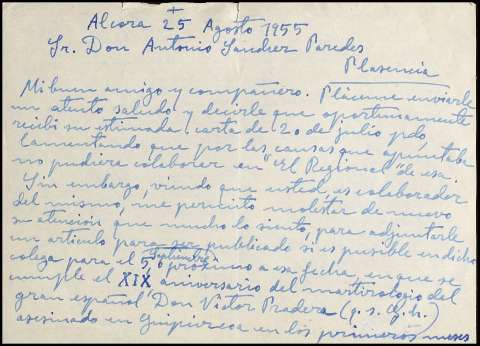 +
Alcora 25 Agosto 1955
Sr. Don Antonio Sanchez Paredes
Plasencia
Mi buen amigo y compañero. Pláceme enviarle
un atento saludo y decirle que oportunamente
recibí su estimada carta de 20 de julio pdo,
lamentando que por las causas que apuntaba
no pudiera colaborar en "El Regional" de esa.
Sin embargo, viendo que usted es colaborador
del mismo, me permito molestar de nuevo
su atención que mucho lo siento, para adjuntarle
un artículo para ser publicado si es posible en dicho
colega para el 5, 6 Septiembre próximo o a esa fecha, en que se
cumple el XIX aniversario del martirologio del
gran español Don Victor Pradera (q. s. g. h.)
asesinado en Guipúzcoa en los primeros meses